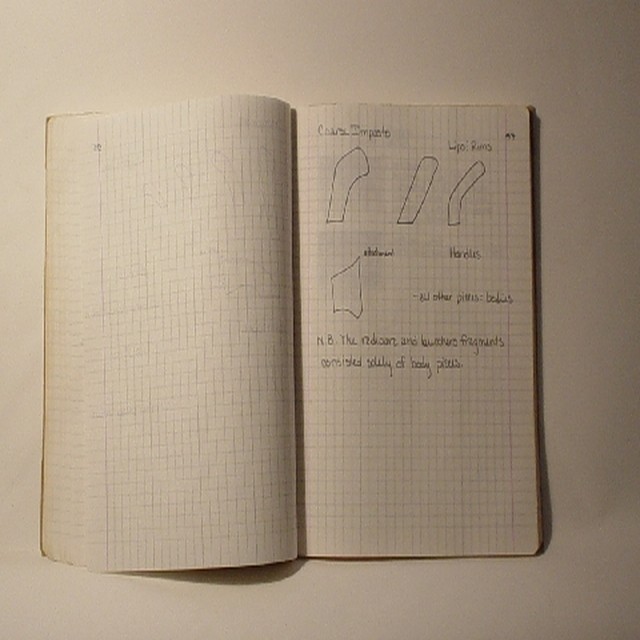 Coarse Impasto
Lips/Rims
attachment
Handles
- all other pieces = bodies
N.B. The redware and bucchero fragments
consisted solely of body pieces.